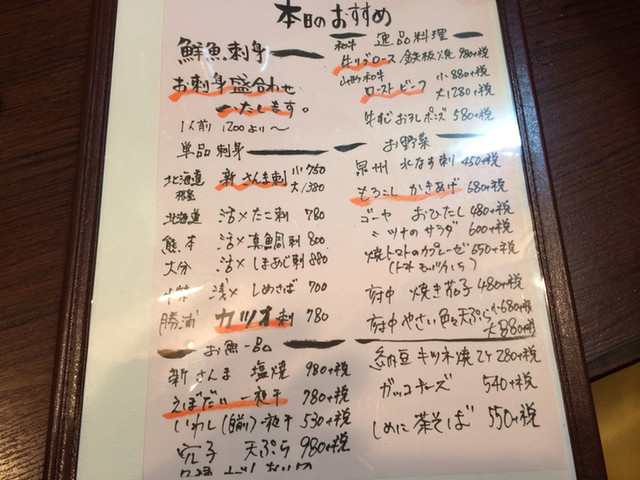 本日のおすすめ
鮮魚刺身
お刺身盛合わせ
いたします。
1人前 1200より〜
単品刺身
北海道 根室 新さんま刺 小750 大1380
北海道 活〆たこ刺 780
熊本 活〆真鯛刺 800
大分 活〆しまあじ刺 880
浅〆 しめさば 700
勝浦 カツオ刺 780
お魚一品
新さんま 塩焼 980+税
えぼだい 一夜干 780+税
いわし(自前)一夜干 530+税
穴子 天ぷら 980+税
逸品料理
和牛 牛リブロース 鉄板焼 980+税
山形和牛 ローストビーフ 小880+税 大1280+税
牛すじおろしポンズ 580+税
お野菜
泉州 水なす刺 450+税
もろこし かきあげ 680+税
ゴーヤ おひたし 480+税
〃 ツナのサラダ 600+税
焼トマトのカプレーゼ 650+税
府中 焼き茄子 480+税
府中やさい色々天ぷら 小680+税 大880+税
納豆キツネ焼 2ケ 280+税
ガッコチーズ 540+税
しめに茶そば 550+税